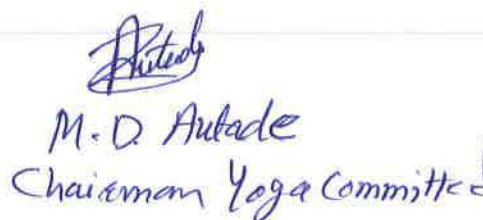 Autade
M. D. Autade
Chairman Yoga Committee